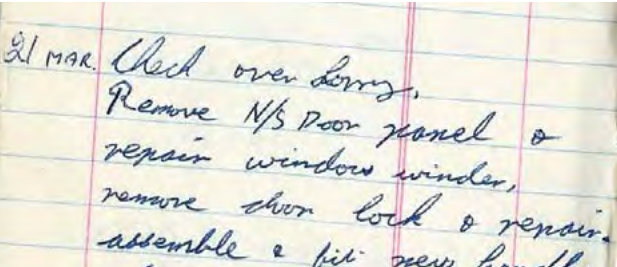 21 MAR. Check over Lorry,
Remove N/S Door panel &
repair window winder,
remove door lock & repair.
assemble & fit new